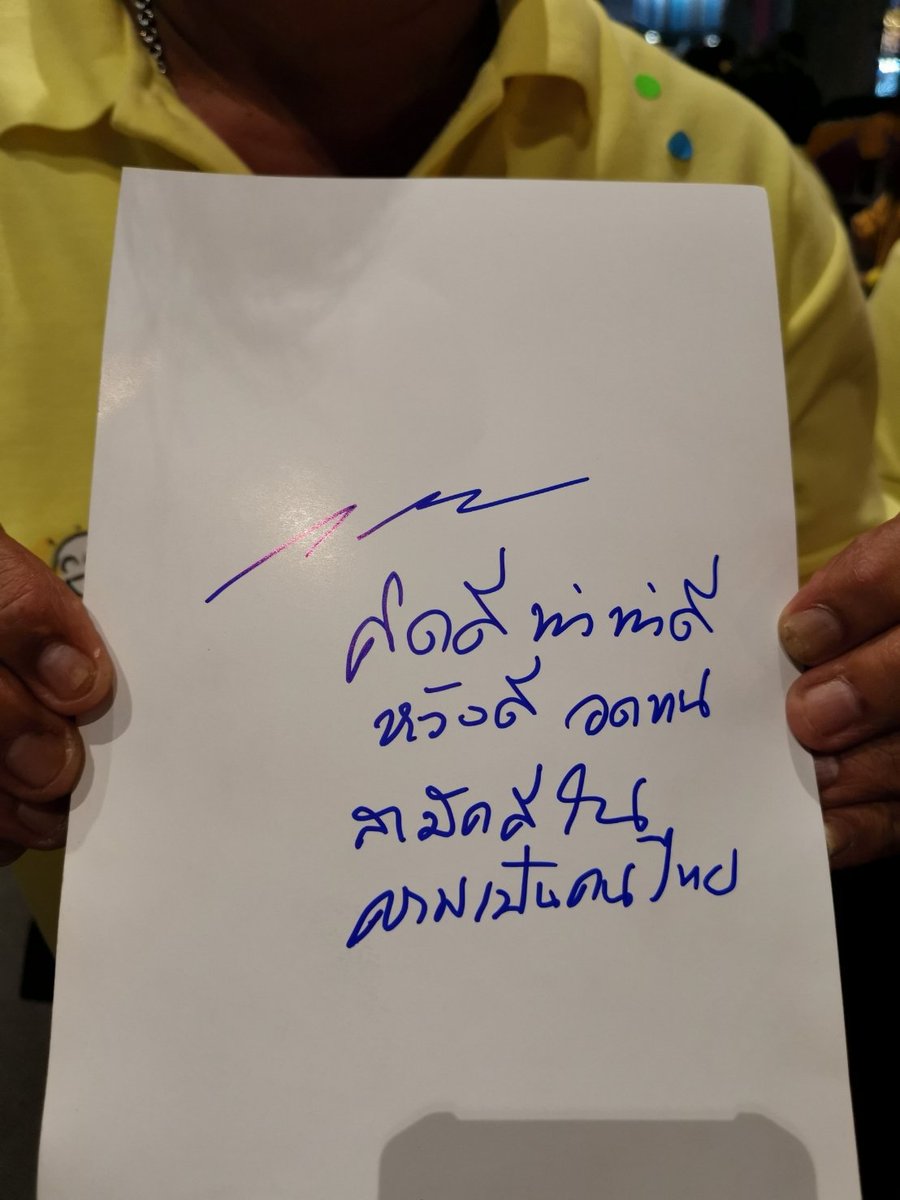 คิดดี ทำ ทำดี
หวังดี อดทน
สามัคคีใน
ความเป็นคนไทย